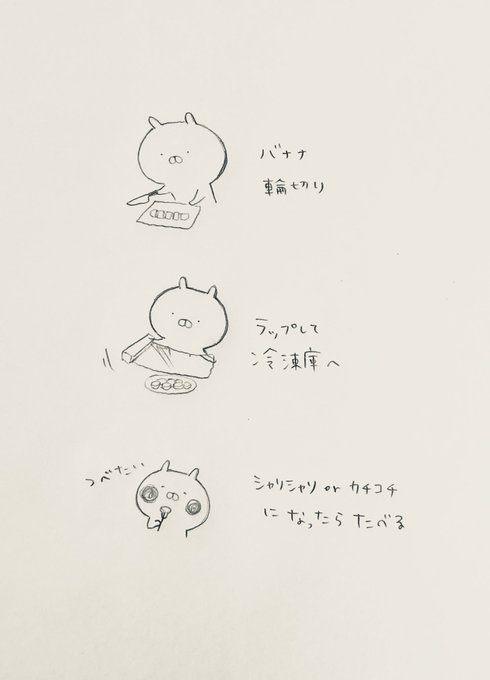 バナナ
輪切り
ラップして
冷凍庫へ
つべたい
シャリシャリ or カチコチ
に なったら たべる